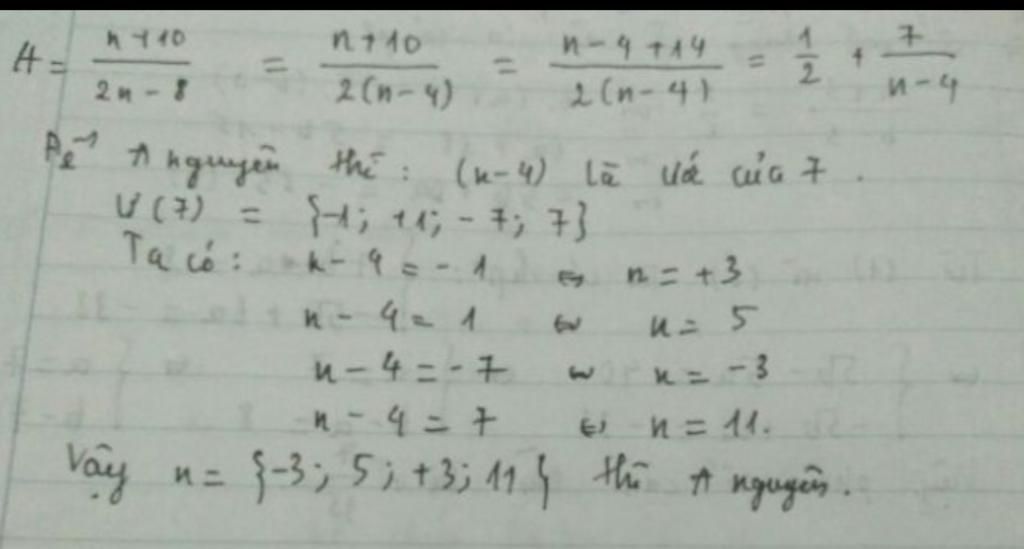 A = n+10 / 2n-8 = n+10 / 2(n-4) = n-4+14 / 2(n-4) = 1/2 + 7/n-4
Để A nguyên thì : (n-4) là ước của 7.
Ư(7) = {-1; +1; -7; 7}
Ta có : n-4 = -1 ⇔ n = +3
n - 4 = 1 ⇔ n = 5
n - 4 = -7 ⇔ n = -3
n - 4 = 7 ⇔ n = 11.
Vậy n = {-3; 5; +3; 11} thì A nguyên.